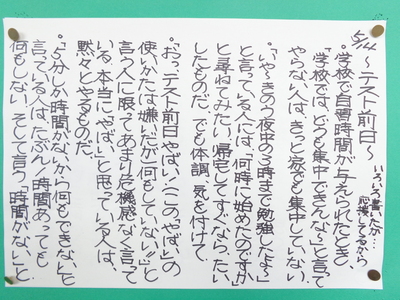 5/22 〜テスト前日〜
いろいろ書いたが…応援してるから
・学校で自習時間が与えられたとき、
「学校では、どうも集中できんな〜」と言って
やらない人は、きっと家でも集中していない。
・「いや〜きのう夜中の3時まで勉強したよ〜」
と言っている人には、「何時に始めたのですか」
と尋ねてみたい。帰宅してすぐなら、たい
したものだ。でも体調、気を付けて。
・「おっ、テスト前日やばい！(この「やばい」の
使いかたは嫌いだが)何もしていない!!」と
言う人に限ってあまり危機感なく言って
いる。本当に「やばい」と思っている人は、
黙々とやるものだ。
・「5分しか時間がないから何もできない」と
言っている人は、たぶん1時間あっても
何もしない。そして言う「時間がない」と